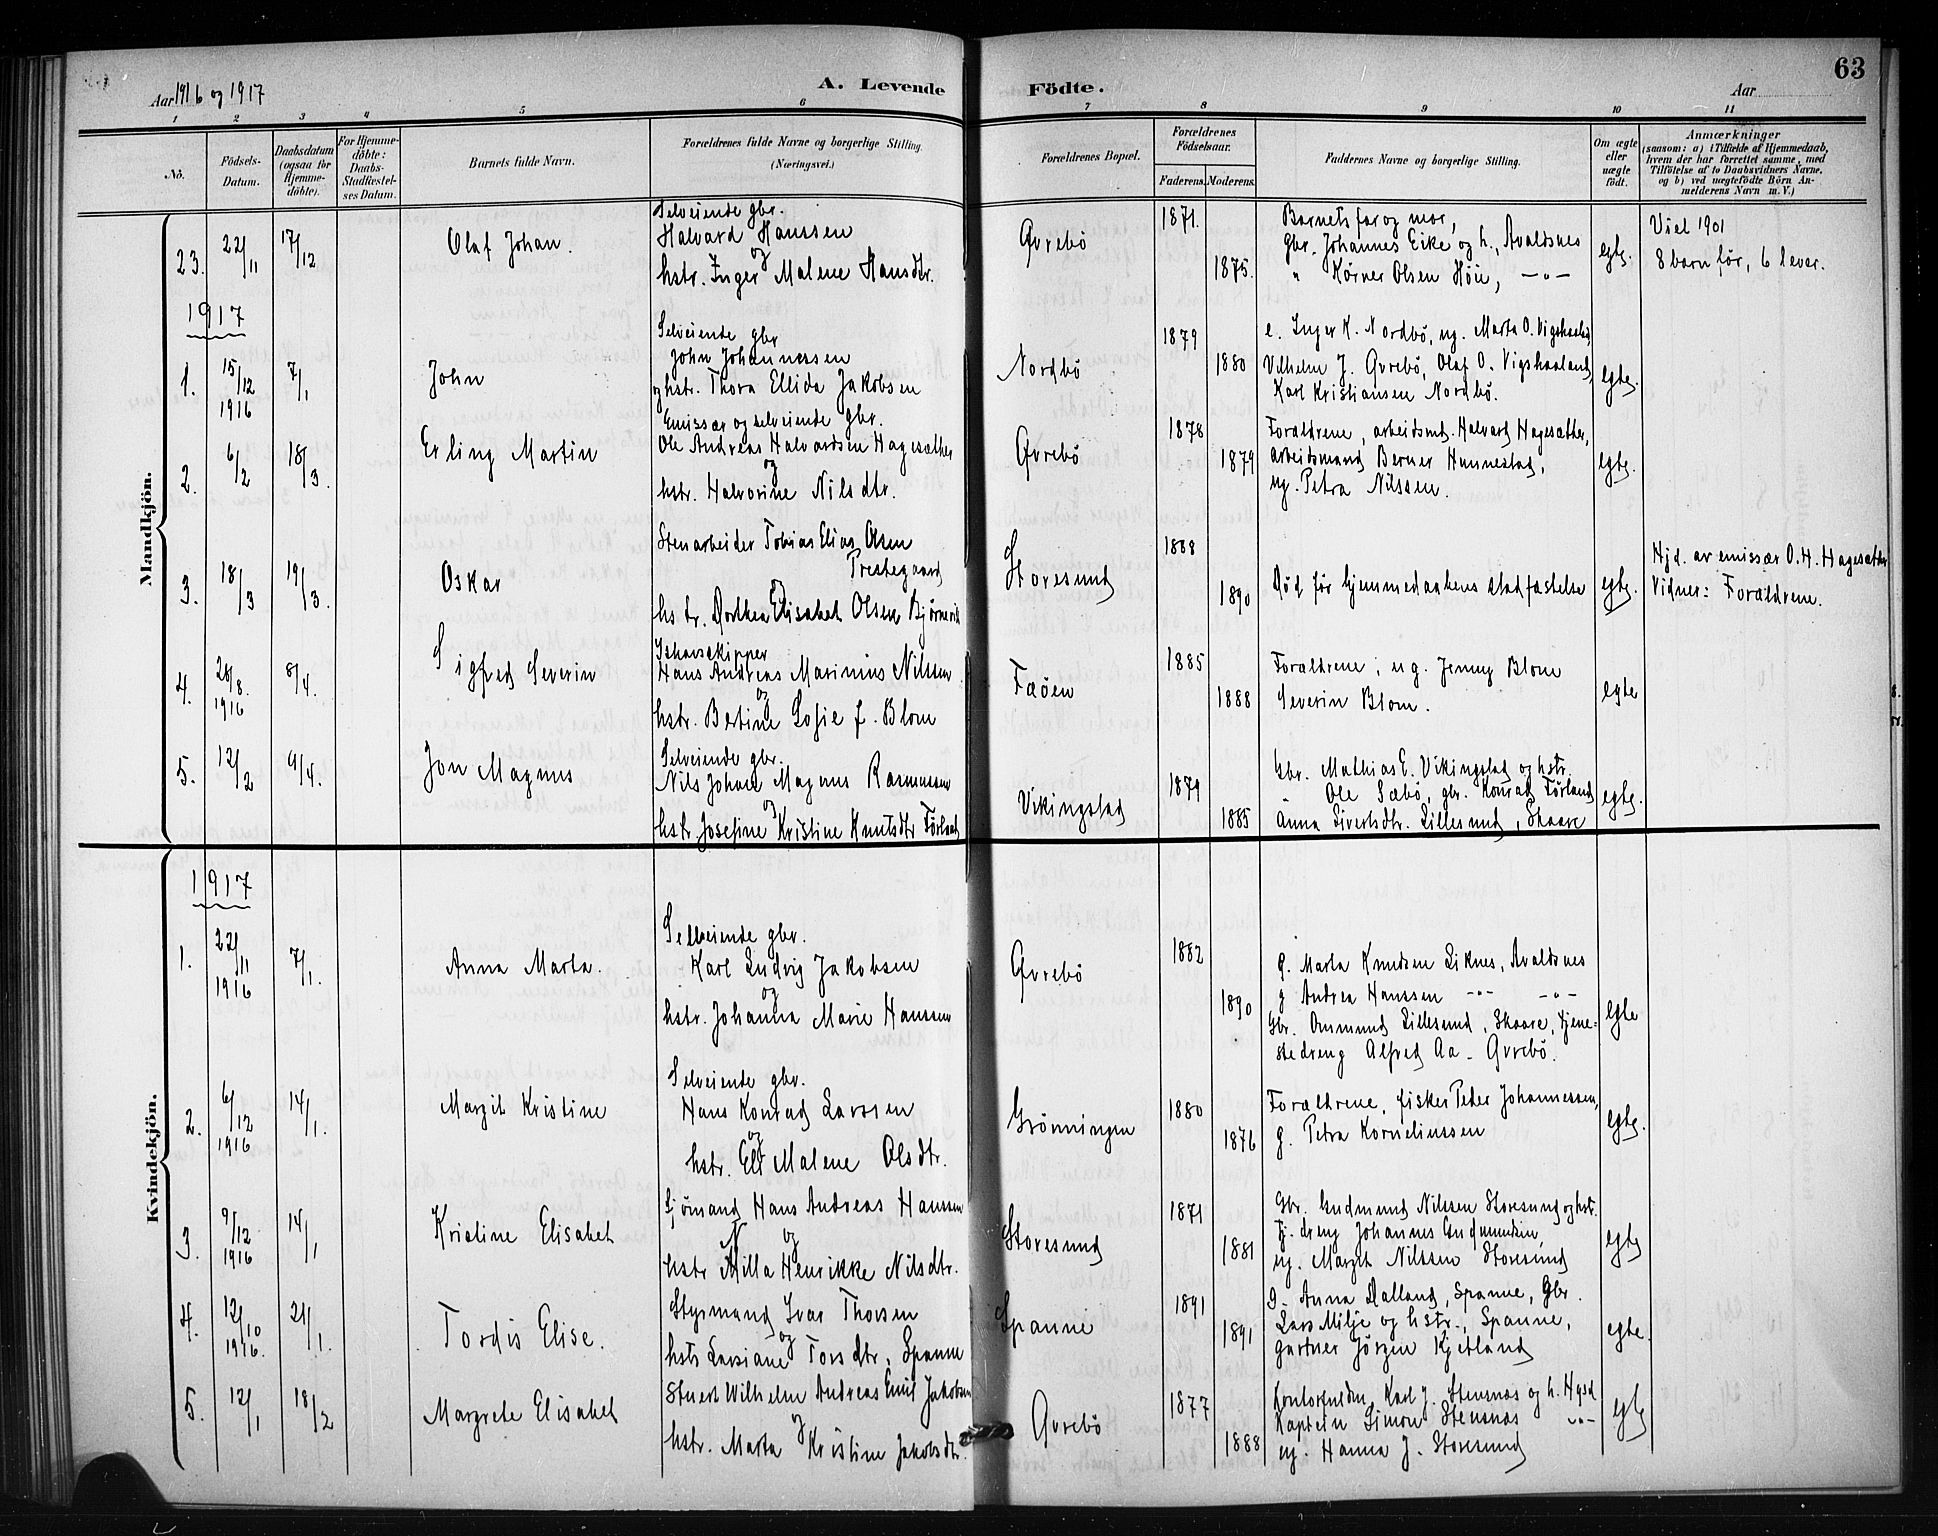 63
Aar 1916 og 1917
A. Levende Födte.
Aar
1 2 3 4 5 6 7 8 9 10 11
No.
Födsels-Datum.
Daabsdatum (ogsaa for Hjemme-döbte).
For Hjemme-döbte: Daabs-Stadfæstel-ses Datum.
Barnets fulde Navn.
Forældrenes fulde Navne og borgerlige Stilling. (Næringsvei.)
Forældrenes Bopæl.
Forældrenes Födselsaar.
Faderens. Moderens.
Faddernes Navne og borgerlige Stilling.
Om ægte eller uægte födt.
Anmærkninger
(saasom: a) i Tilfælde af Hjemmedaab,
hvem der har forrettet samme, med
Tilföielse af to Daabsvidners Navne,
og b) ved uægtefödte Börn An-
melderens Navn m. V.)
Mandkjön.
23. 22/11 17/12
Olaf Johan.
Selveiende gbr.
Halvard Hanssen
og
hstr. Inger Malene Hansdtr.
Qvrebö
1871.
1875.
Barnets far og mor,
Gbr. Johannes Eike og h., Avaldsnes
" Körner Olsen Höie, -"-
egte.
Viet 1901
8 barn før, 6 lever.
1917
1. 15/12 1916 7/1
John
Selveiende gbr
John Johannessen
og hstr. Thora Ellida Jakobsen
Nordbö
1879
1880
e. Inger K. Nordbö, ug. Marta O. Vigshaaland,
Vilhelm J. Qvrebö, Olaf O. Vigshaaland,
Karl Kristiansen Nordbö.
egte.
2. 6/2 18/3.
Erling Martin
Emissær og selveiende gbr.
Ole Andreas Halvardsen Hagesæther
og
hstr. Halvorine Nilsdtr.
Qvrebö
1878
1879
Forældrene, arbeidsmd. Halvard Hagesæther,
arbeidsmand Berner Hunnestad,
ug. Petra Nilssen.
egte.
3. 18/3 19/3.
Oskar
Stenarbeider Tobias Elias Olsen
Prestegaard
og
hstr. Dorthea Elisabet Olsen Bjørnevik
Storesund
1888
1890
Död før hjemmedaabens stadfæstelse
egte.
Hjd. av emissær O. H. Hagesæther
Vidner: Forældrene.
4. 28/8. 1916 8/4.
Sigfred Severin
Ishavsskipper
Hans Andreas Marinius Nilssen
og
hstr. Bertine Sofie f. Blom
Fæöen
1885
1888
Forældrene, ug. Jenny Blom
Severin Blom.
egte
5. 12/2 9/4.
Jon Magnus
Selveiende gbr.
Nils Johan Magnus Rasmussen
og
hstr. Josefine Kristine Knutsdtr Förland
Vikingstad
1879
1885
Gbr. Mathias E. Vikingstad og hstr.
Ole Sæbö, gbr. Konrad Förland
Anna Sivertsdtr. Lillesund, Skaare
egte.
Kvindekjön.
1917
1. 22/11 1916 7/1.
Anna Marta.
Selveiende gbr.
Karl Ludvig Jakobsen
og
hstr. Johanna Marie Hanssen
Qvrebö
1882
1890
g. Marta Knudsen Liknes, Avaldsnes
g Andrea Hanssen -"- -"-
Gbr. Ommund Lillesund, Skaare, tjene-
stedreng Alfred Aa. Qvrebö.
egte
2. 6/12 1916 14/1.
Margit Kristine
Selveiende gbr.
Hans Konrad Larsen
og
hstr. Eli Malene Olsdtr.
Grönningen
1880
1876
Forældrene, fisker Peder Johannessen,
g. Petra Korneliussen
egte.
3. 9/12 1916 14/1
Kristine Elisabet
Sjömand Hans Andreas Hansen
og
hstr Milla Henrikke Nilsdtr.
Storesund
1871
1881
Gbr. Gudmund Nilssen Storesund og hstr.
tj. dreng Johannes Gudmundsen,
ug. Margit Nilssen Storesund
egte
4. 12/10 1916. 21/1.
Tordis Elise.
Styrmand Ivar Thorsen
og
hstr Larsiane Torsdtr. Spanne
Spanne
1891
1891
g. Anna Dalland, Spanne, Gbr.
Lars Milje og hstr., Spanne,
gartner Jörgen Kjetland
egte.
5. 12/1 18/2
Margrete Elisabet
Stuert Wilhelm Andreas Emil Jakobsen
og
hstr. Marta Kristine Jakobsdtr.
Qvrebö
1877
1888
Karl J. Stensnæs og h. Hgsd
Kaptein Simon Stensnæs -"-
ug. Hanna J. Storesund
egte